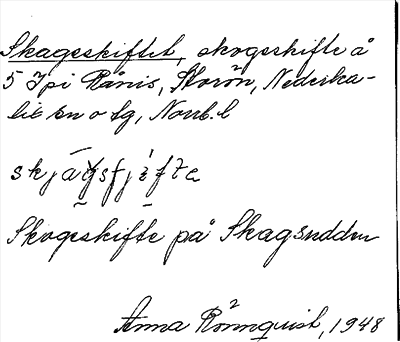 Skageskiftet, skogsskifte å
5 Jpi Rånis, Storön, Nederka-
lix sn o tg, Norrb. l
Skogsskifte på Skagsudden
Anna Rönnquist, 1948